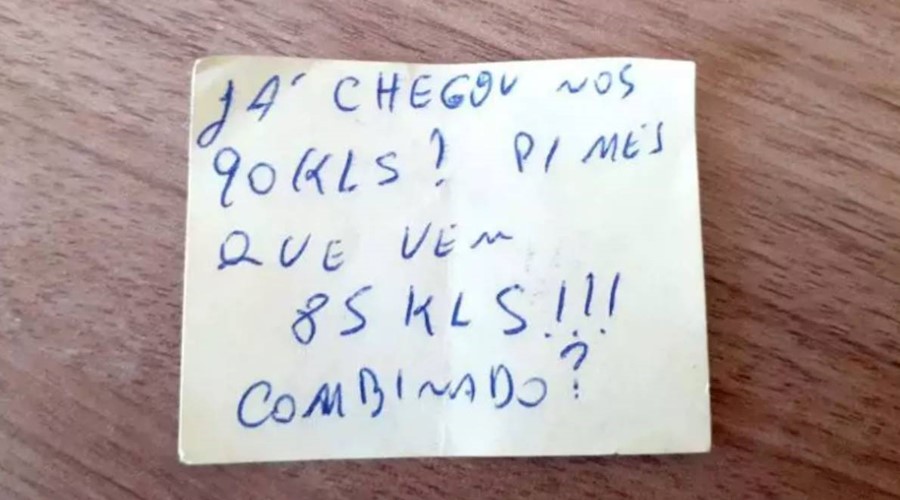 JÁ CHEGOU NOS
90KLS? P/ MÊS
QUE VEM
85 KLS!!!
COMBINADO?